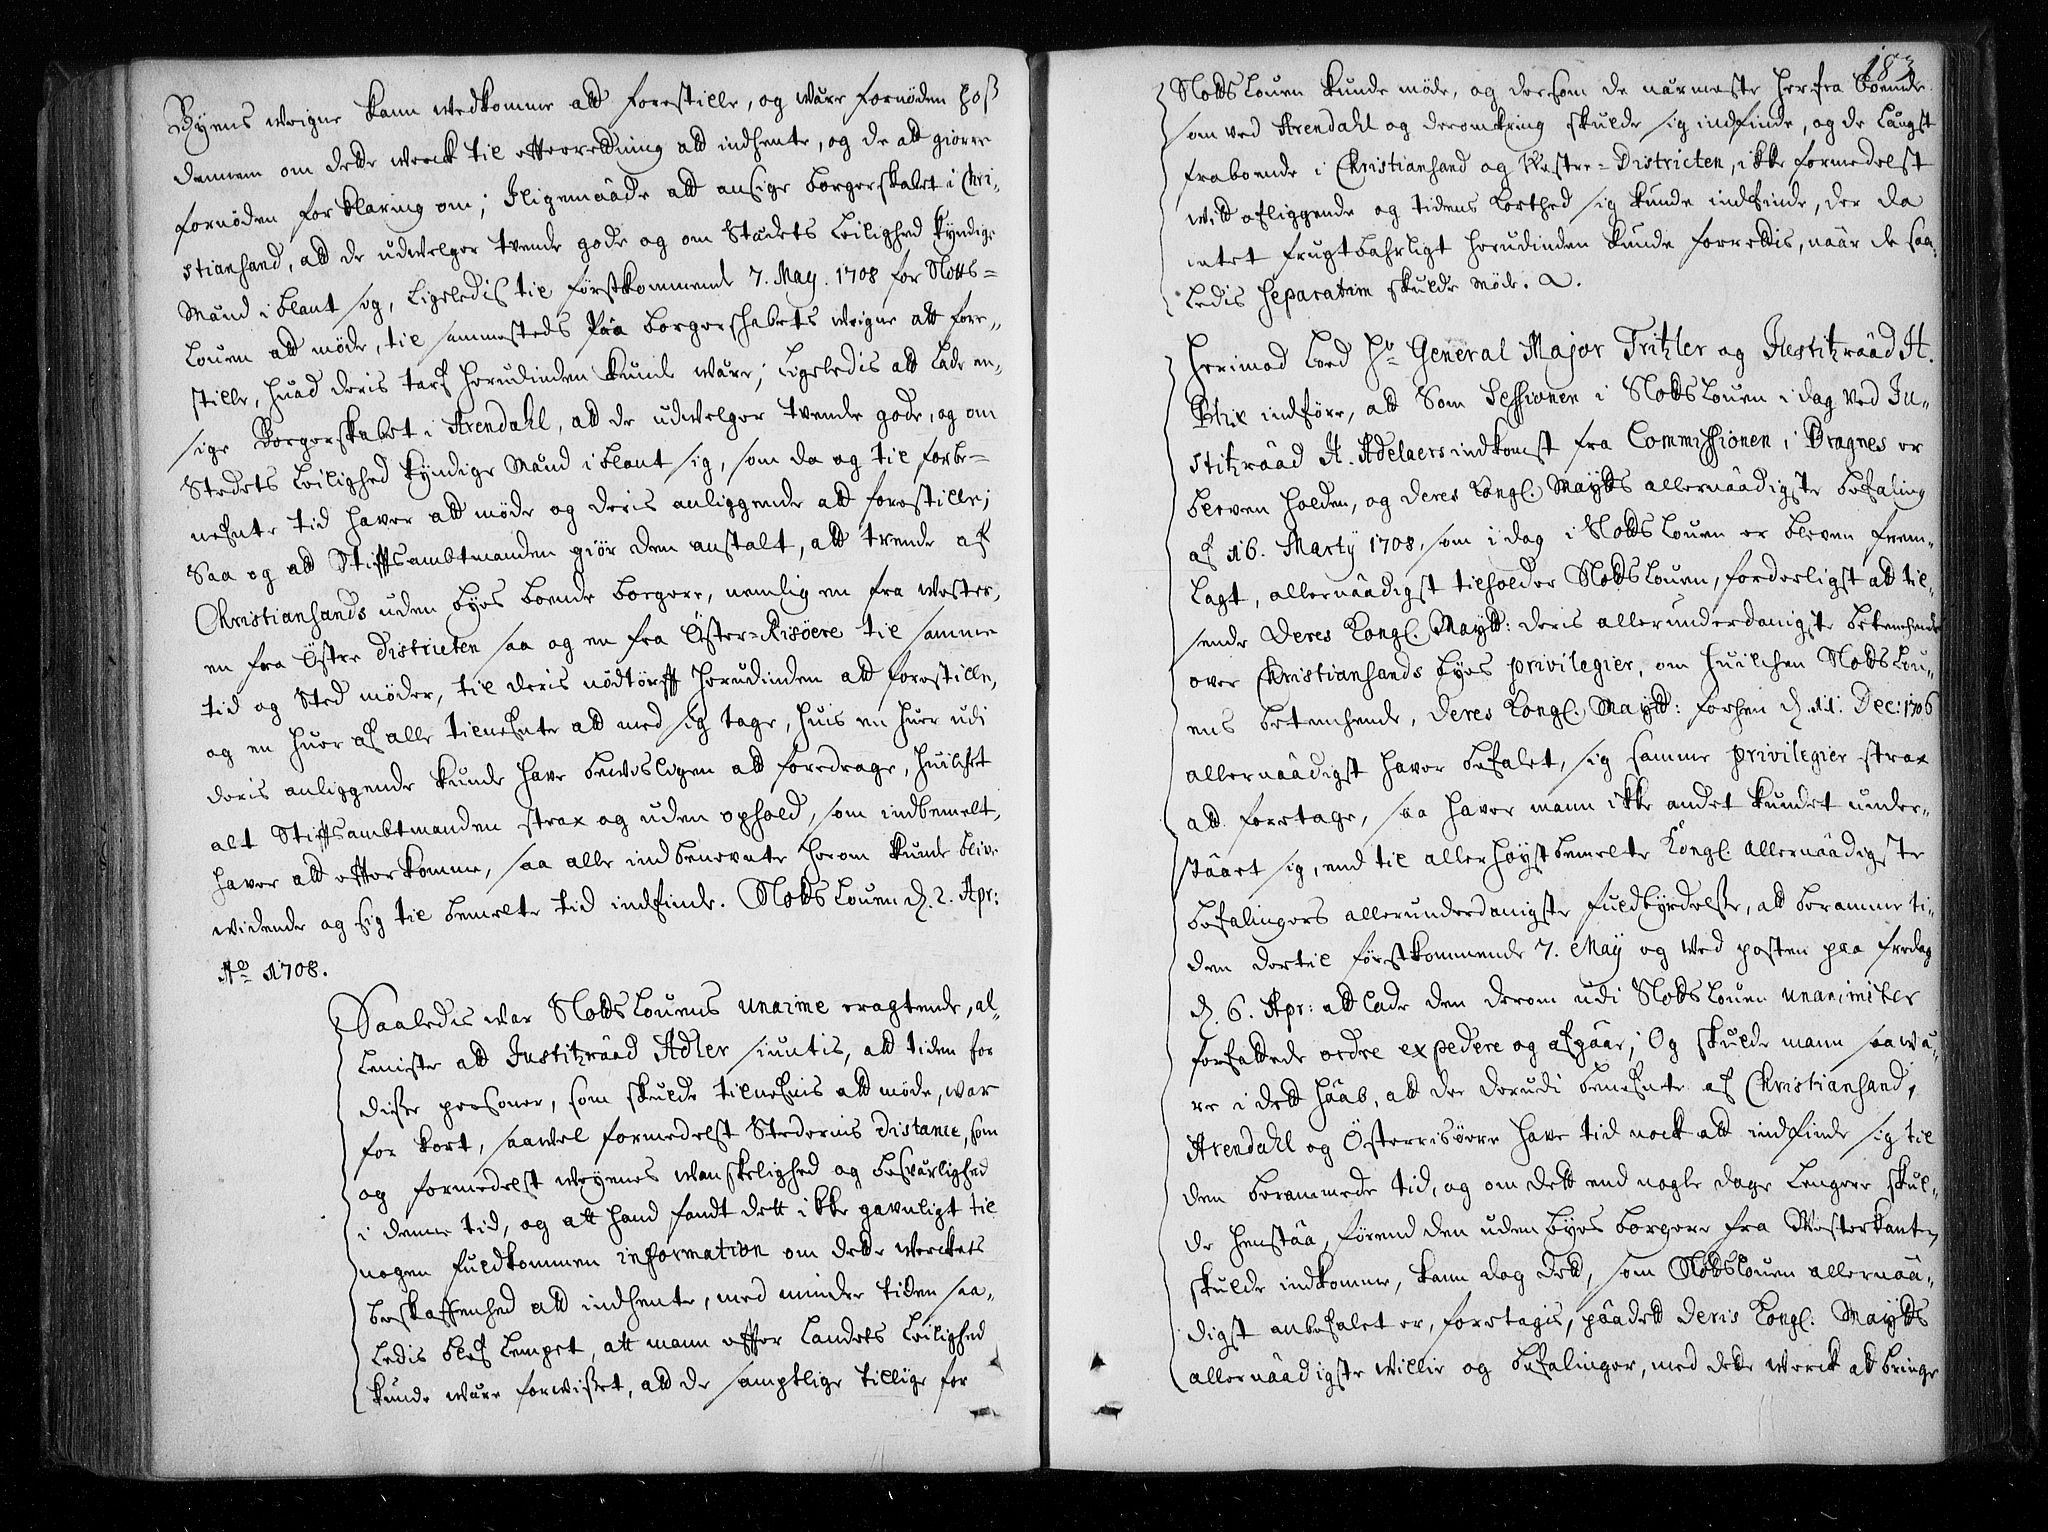 Byens weigne kann wedkomme att forestille, og wære fornöden hoß
dennem om dette werck til efterretning att indhente, og de att giöre
fornöden forklaring om; Iligemaade att ansige borgerskabet i Chri-
stiansand, att de udwelger tvende gode og om Stædets Leilighed kyndige
Mænd i blant sig, Ligeledis til förstkommende 7. May. 1708 for Slotts-
Louen att möde, til sammesteds paa borgerskabets weigne att fore-
stille, huad deris tarf herudinden kunde være; Ligeledis att lade an-
sige Borgerskabet i Arendahl, att de udwelger tvende gode, og om
Stedets Leilighed kyndige Mænd i blant sig, som da og til forbe-
nefnte tid haver att möde og deris anliggende att forestille;
Saa og att Stiftsambtmanden giör den anstalt, att tvende af
Christiansands uden byes boende borgere, nemlig en fra wester,
en fra Östre Districten saa og en fra Öster-Risöere til samme
tid og Sted möder, til deris nödtörfft herudinden att forestille,
og en huer af alle tilnefnte att med sig tage, huis en huer udi
deris anliggende kunde have bewisligen att fordrage, huilcket
alt Stiftsambtmanden strax og uden ophold, som indbemelt,
haver att efterkomme, saa alle indbenevnte herom kunde blive
widende og sig til bemelte tid indfinde. Slotts Louen d. 2. Apr:
Ao 1708.
Saaledis war Slotts Louens unanime eragtende, al-
leniste att Justitzraad Adler siuntis, att tiden for
disse personer, som skulde tilnefnis att möde, war
for kort, saawel formedelst Stedernis distance, som
og formedelst weyenes wanskelighed og besværlighed
i denne tid, og att hand fandt dett ikke gavnligt til
nogen fuldkommen information om dette werckets
beskaffenhed att indhente, med mindre tiden saa-
ledis blef lempet, att mann efter landets Leilighed
kunde være forwisset, att de samptlige tillige for
183
Slotts Louen kunde möde, og dersom de nærmeste herfra boende
som ved Arendahl og deromkring skulde sig indfinde, og de Længst
fraboende i Christiansand og Westre-Districten, ikke formedelst
wit afliggende og tidens korthed sig kunde indfinde, der da
intet frugtbahrligt herudinden kunde forrettis, naar de saa-
ledis separatim skulde möde.
Herimod loed Hr General Major Tritzler og Justitzraad H.
Blix indföre, att som Sessionen i Slotts Louen i dag ved Ju-
stitzraad H. Adelaers indkomst fra Commissionen i Bragnes er
bleven holden, og Deres Kongl. Maytts allernaadigste befaling
af 16. Marty 1708, som i dag i Slotts Louen er bleven frem-
lagt, allernaadigst tilholder Slotts Louen, forderligst att til-
sende Deres Kongl. Maytt: deris allerunderdanigste betenchende
over Christiansands byes privilegier, om huilchen Slotts Lou-
ens betenchende, Deres Kongl. Maytt: forhen d. 11. Dec: 1706
allernaadigst haver befalet, sig samme privilegier strax
att foretage, saa haver mann ikke andet kundet under-
staaet sig, end til allerhöystbemelte Kongl. allernaadigste
befalingers allerunderdanigste fuldbyrdelse, att beramme ti-
den dertil förstkommende 7. May og ved posten paa fredag
d. 6. Apr: att lade den derom udi Slotts Louen unanimiter
forfattede ordre expedere og afgaar; Og skulde mann saa wæ-
re i dett haab, att de derudi benefnte af Christiansand,
Arendahl og Österrisöere have tid nock att indfinde sig til
den berammede tid, og om dett end nogle dage lengere skul-
de henstaa, förend den uden byes borgere fra Westerkanten
skulde indkomme, kann dog dett, som Slottslouen allernaa-
digst anbefalet er, foretagis, paa dett Deris Kongl: Maytts
allernaadigste willie og befalinger, med dette werck att bringe